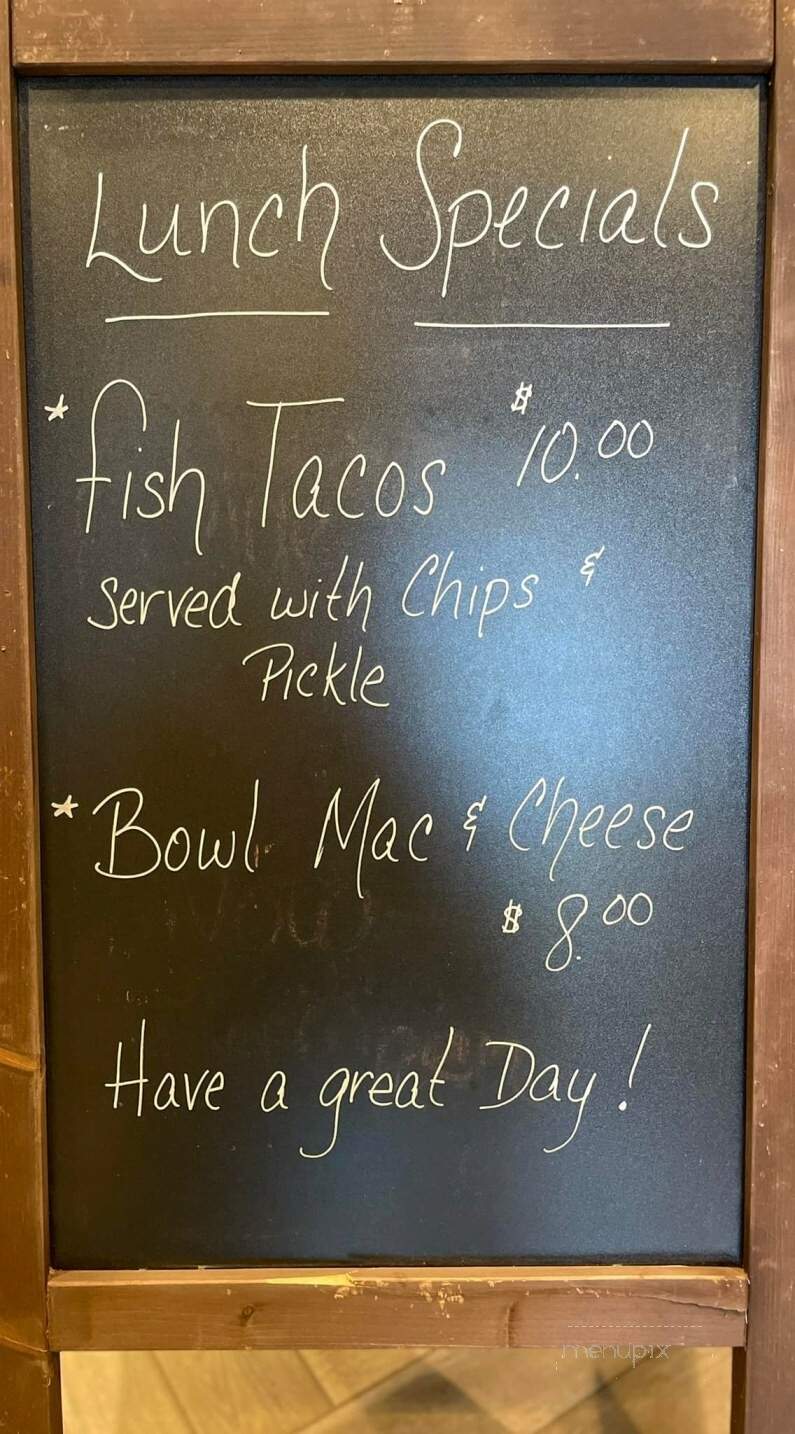 Lunch Specials
* fish Tacos $10.00
Served with Chips &
Pickle
* Bowl Mac & Cheese
$8.00
Have a great Day!
menupix